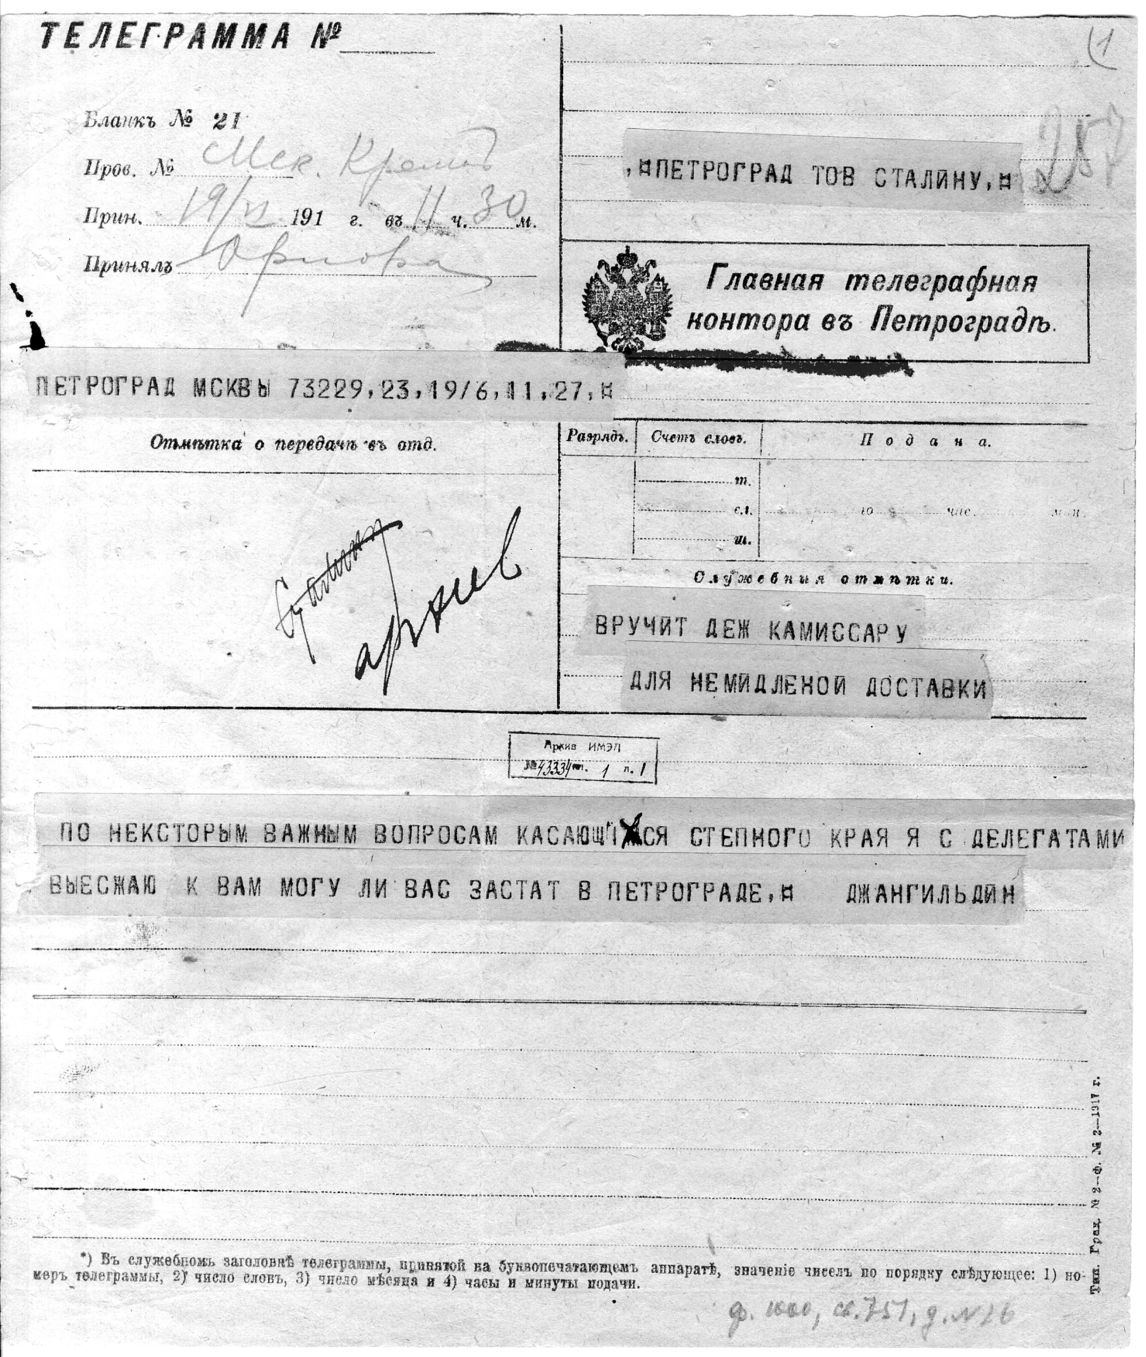 ТЕЛЕГРАММА №
1
Бланкъ № 21
Пров. № Мск. Кремль
Прин. 19/VI 191 г. въ 11 ч. 30 м.
Принялъ Орлова
257
,¤ПЕТРОГРАД ТОВ СТАЛИНУ,¤
Главная телеграфная
контора въ Петроградѣ.
ПЕТРОГРАД МСКВЫ 73229,23,19/6,11,27,¤
Отмѣтка о передачѣ въ отд.
Разрядъ. Счетъ словъ. Подана.
т.
сл. го час. мин.
ш.
Служебныя отмѣтки.
Сталин
архив
ВРУЧИТ ДЕЖ КАМИССАРУ
ДЛЯ НЕМИДЛЕНОЙ ДОСТАВКИ
Архив ИМЭЛ
№ 43334 п. 1 л. 1
ПО НЕКСТОРЫМ ВАЖНЫМ ВОПРОСАМ КАСАЮЩИХСЯ СТЕПНОГО КРАЯ Я С ДЕЛЕГАТАМИ
ВЫЕСЖАЮ К ВАМ МОГУ ЛИ ВАС ЗАСТАТ В ПЕТРОГРАДЕ,¤ ДЖАНГИЛЬДИН
*) Въ служебномъ заголовкѣ телеграммы, принятой на буквопечатающемъ аппаратѣ, значеніе чиселъ по порядку слѣдующее: 1) но-
меръ телеграммы, 2) число словъ, 3) число мѣсяца и 4) часы и минуты подачи.
Тип. Град. № 2—Ф. № 2—1917 г.
ф. , св. 751, д. № 26